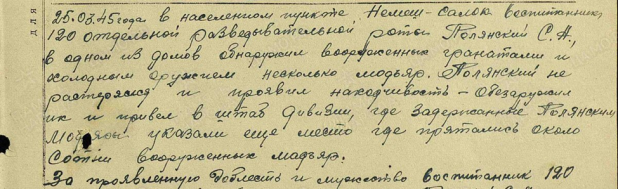 для
25.03.45 года в населенном пункте Немеш-салок воспитанник
120 отдельной разведывательной роты Полянский С.А,
в одном из домов обнаружил вооруженных гранатами и
холодным оружием несколько мадьяр. Полянский не
растерялся и проявил находчивость – обезоружил
их и привел в штаб дивизии, где задержанные Полянским
мадьяры указали еще место где прятались около
Сотни вооруженных мадьяр.
За проявленную доблесть и мужество воспитанник 120